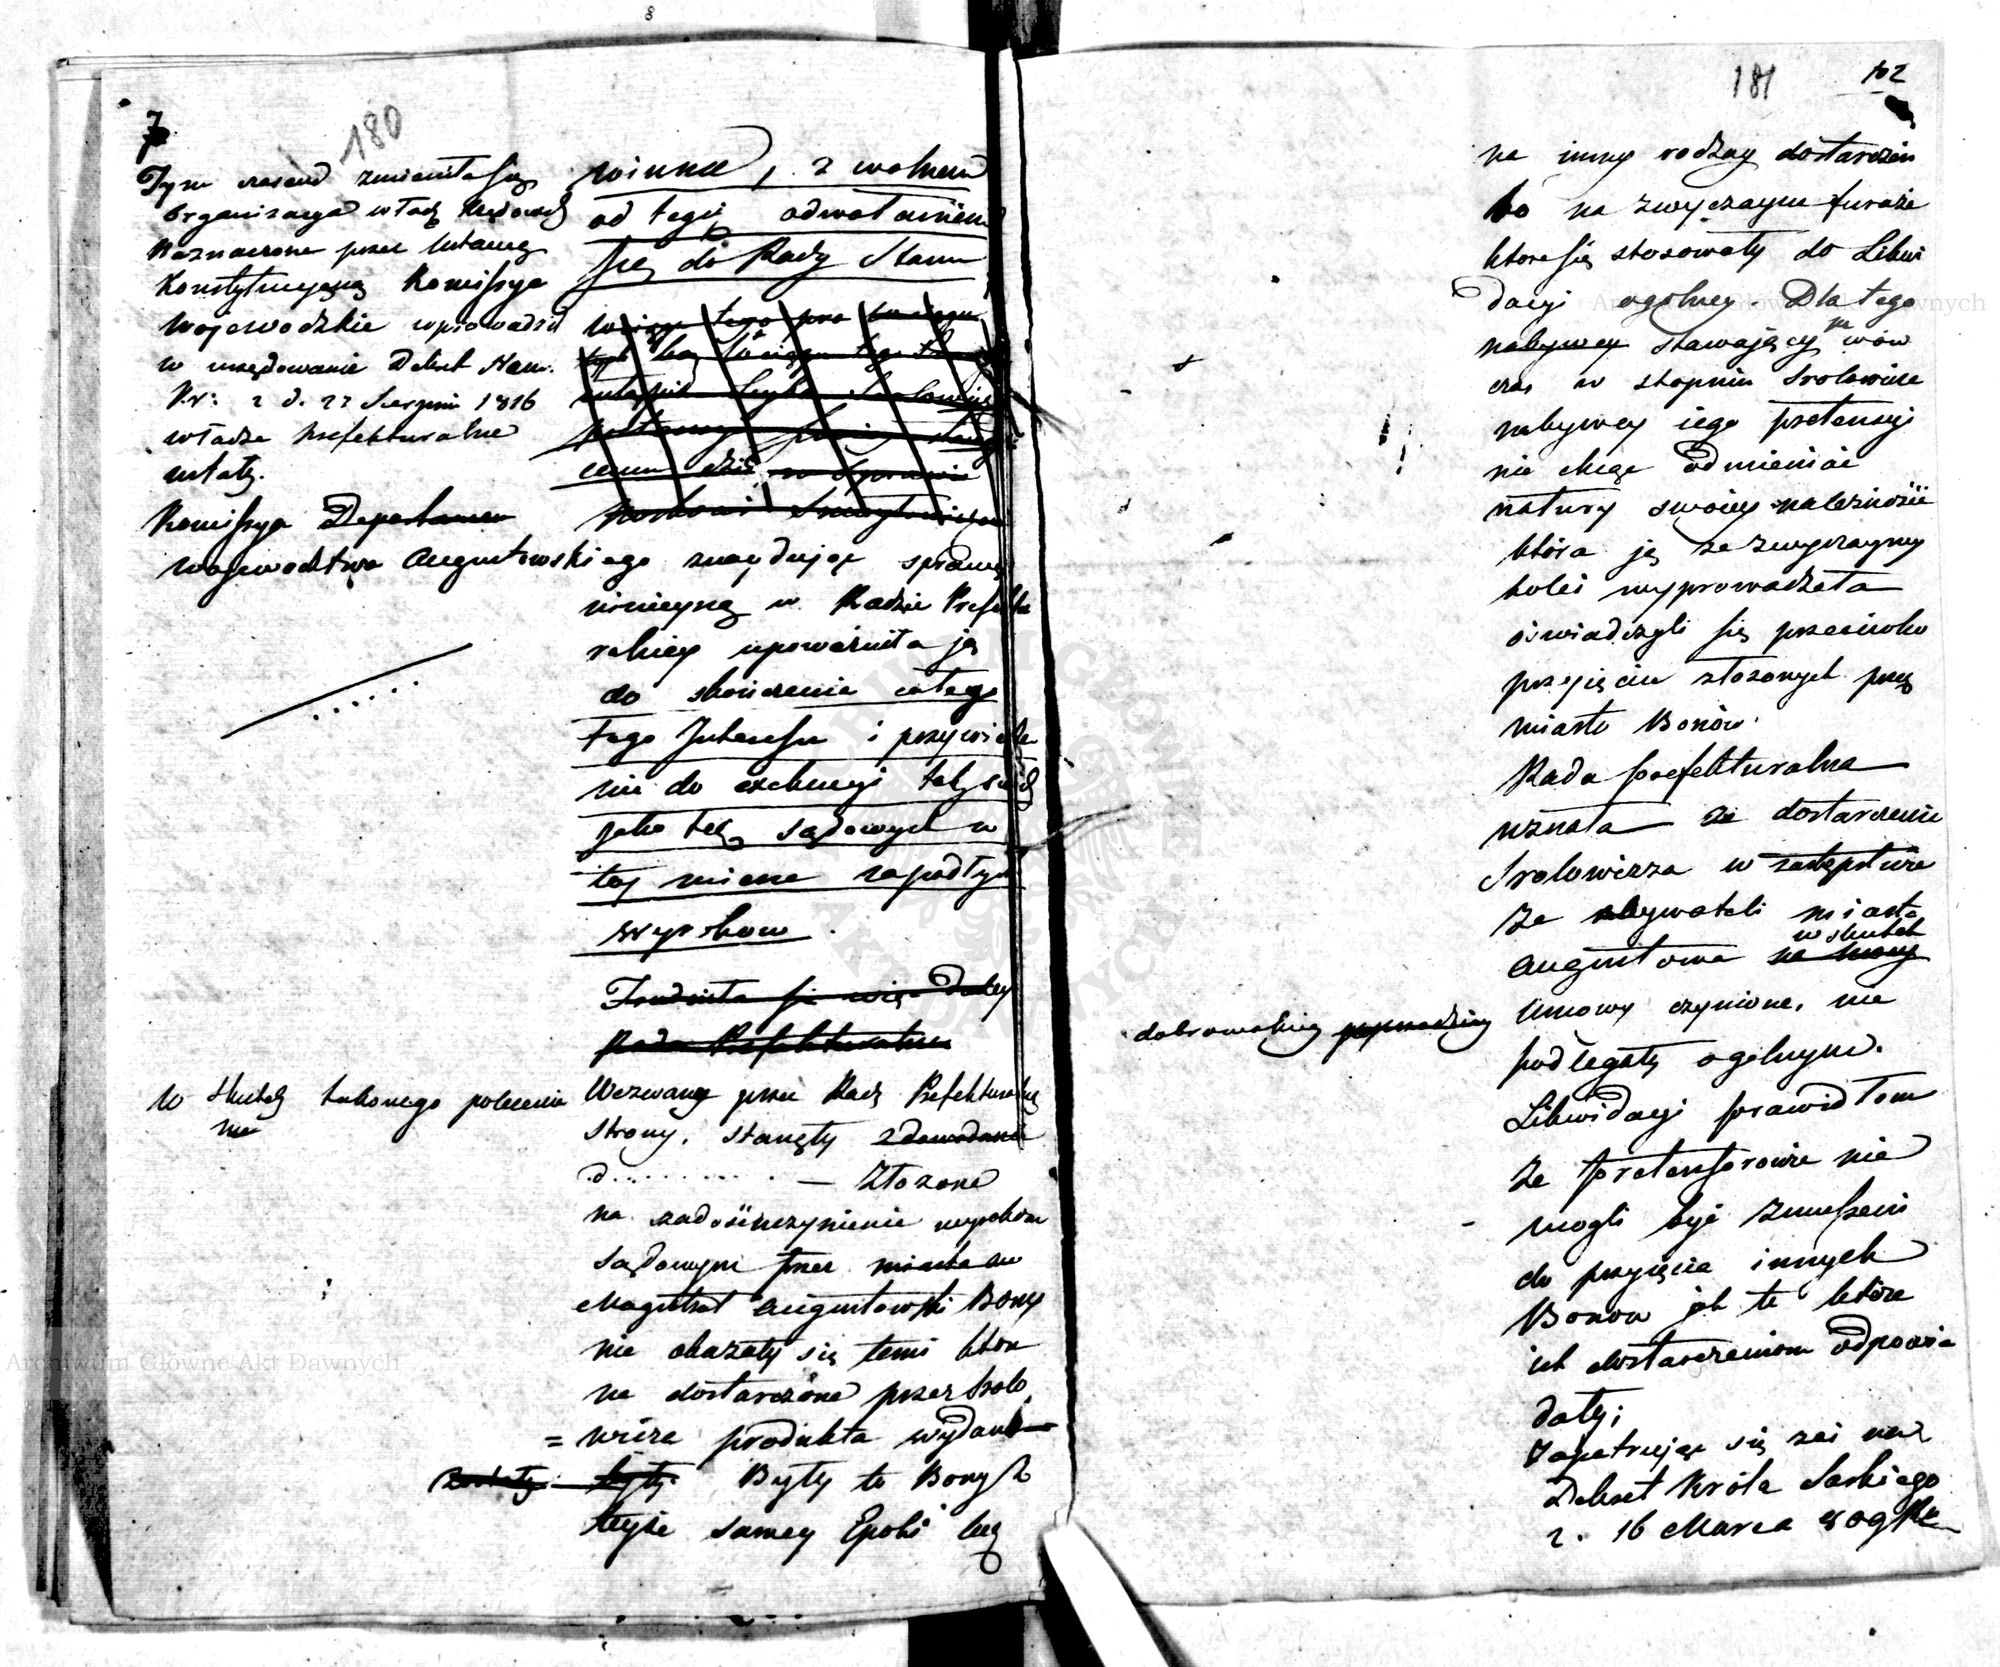 7
180
Tym czasem zmieniła się
Organizacya władz Rządowych
Naznaczone przez Ustawę
Konstytucyjną Komissye
Wojewodzkie wprowadził
w urzędowanie Dekret Nam.
Kr: z d. 27 Sierpnia 1816
władze prefekturalne
ustały.
Komissya Departamen
Wojewodztwa Augustowskiego znayduiąc sprawę
winna, z wolnem
od tegóż odwołaniem
się do Rady Stanu
ninieyszą w Radzie Prefektu
ralney upoważniła ją
do skończenia całego
tego Interessu i przywiedze
nie do exekucyi tak swoich
jako też sądowych w
tey mierze zapadłych
wyroków.
Trudniła się więc daley
Rada Prefekturalna
w skutek takowego polecenia Wezwane przez Radę Prefekturalną
strony, stanęły z dowodami
d. . . . . . . . . — Złożone
na zadośćuczynienie wyrokom
Sądowym przez miasta
Magistrat Augustowski Bony
nie okazały się temi które
na dostarczone przez Srolo
= wicza produkta wydane
zostały były. Były to Bony z
teyże samey Epoki lecz
181
102
na inny rodzay dostarczeń
bo na zwyczayne furaże
które się stosowały do Likwi
dacyi ogólney. Dla tego
nabywcy stawający na ów
czas w stopniu Srolowicza
nabywcy iego pretensyi
nie chcąc odmieniać
natury swoiey należności
która ją ze zwyczayney
kolei wyprowadzała
oświadczyli się przeciwko
przyjęciu złożonych przez
miasto Bonów.
Rada prefekturalna
uznała że dostarczenie
Srolowicza w zastępstwie
za obywateli miasta
w skutek
Augustowa na mocy
dobrowolney poprzedniey Umowy czynione, nie
podlegały ogólnym
Likwidacyi prawidłom
że pretensorowie nie
mogli być zmuszeni
do przyięcia innych
Bonów jak te które
ich dostarczeniom odpowia
dały;
Zapatrując się zaś na
Dekret Króla Saskiego
z. 16 Marca 1809 Rku